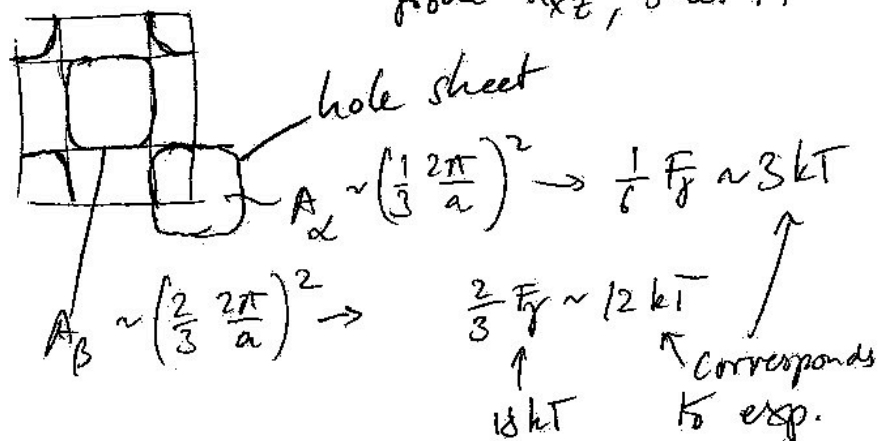 d_xz,
hole sheet
A_α ~ (1/3 2π/a)² → 1/6 F_γ ~ 3 kT
A_β ~ (2/3 2π/a)² → 2/3 F_γ ~ 12 kT
18 kT
corresponds
to exp.